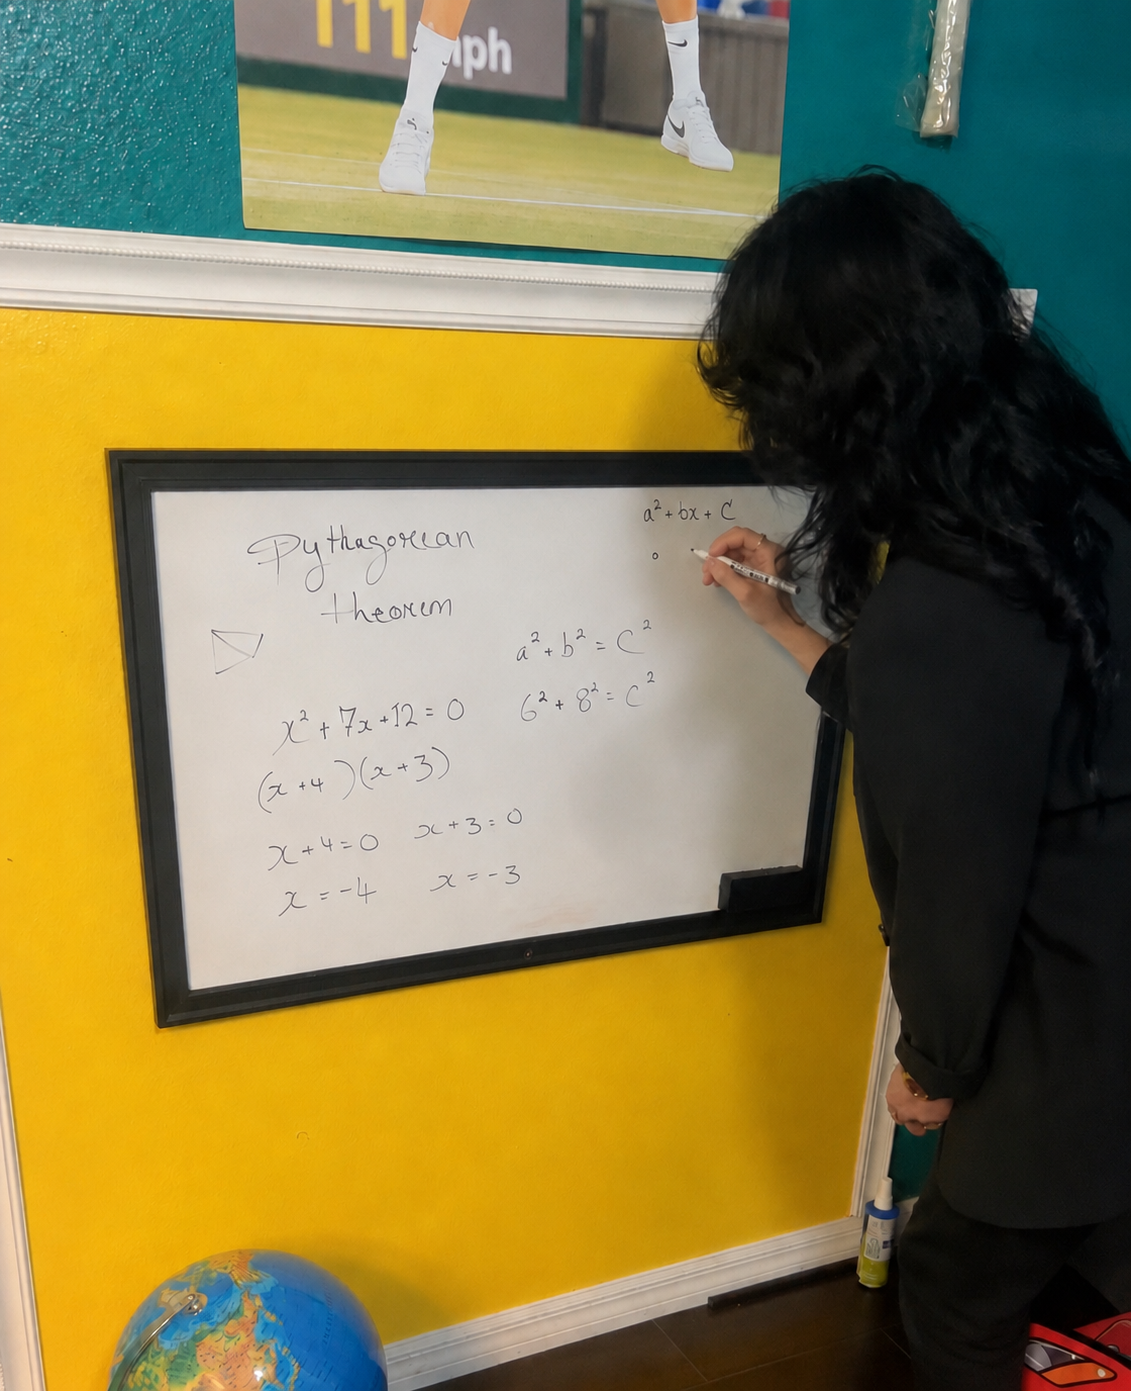 111 mph
Pythagorean
theorem
a² + bx + C
a² + b² = C²
6² + 8² = C²
x² + 7x + 12 = 0
(x + 4)(x + 3)
x + 4 = 0 x + 3 = 0
x = -4 x = -3